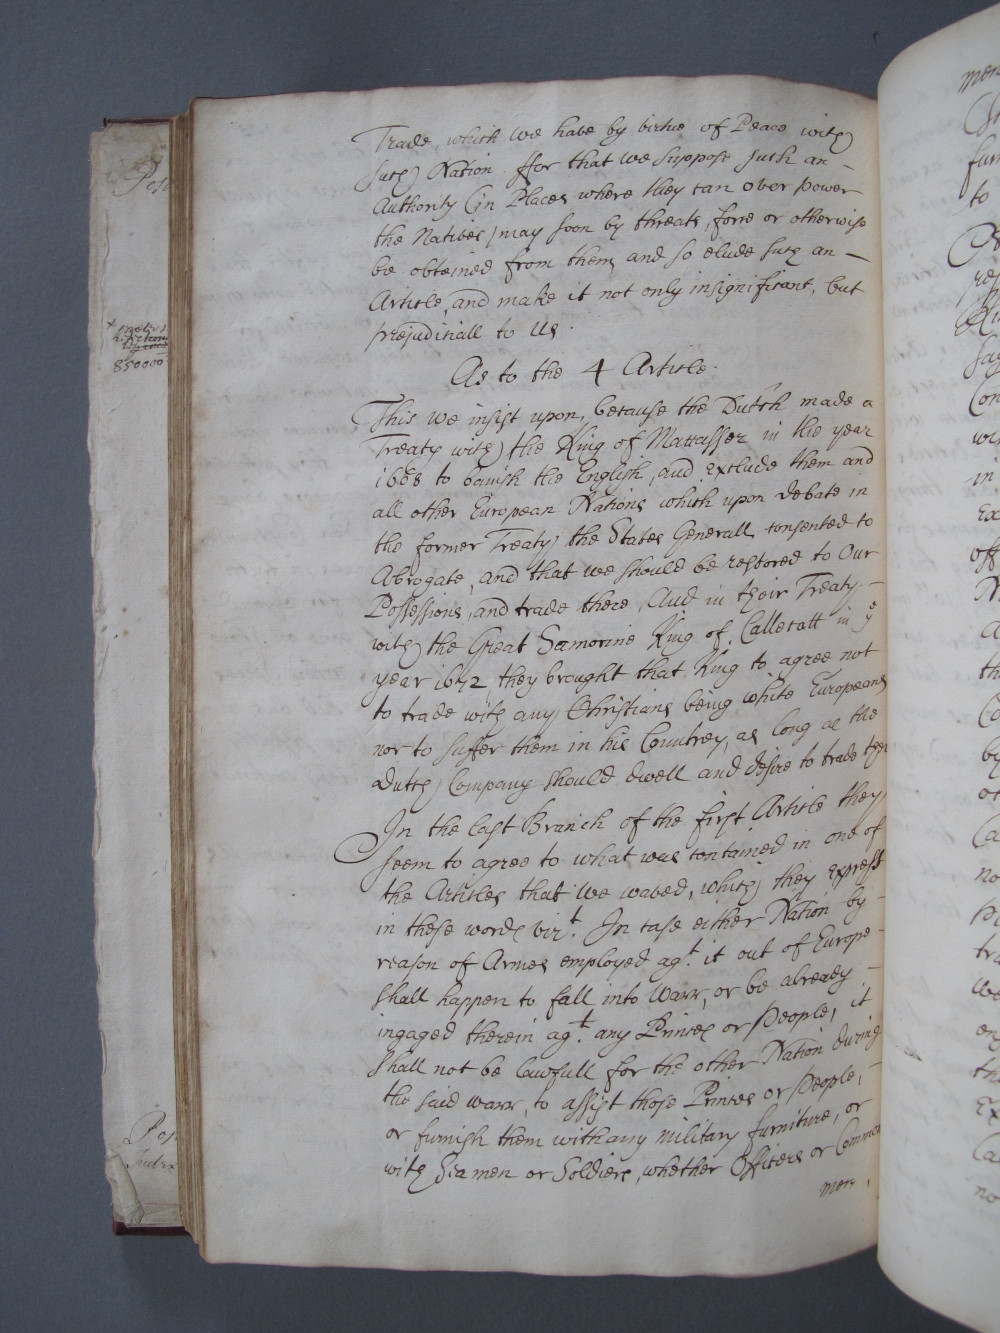 Trade, which we have by virtue of Peace with
such Nation. ffor that we suppose such an -
Authority (in Places where they can over power
the Natives) may soon by threats, force or otherwise
be obteined from them, and so elude such an -
Article, and make it not only insignificant, but
prejudiciall to Us.
As to the 4 Article.
This we insist upon, because the Dutch made a
Treaty with the King of Maccasser in the year
to banish the English, and Exclude them and
all other European Nations which upon debate in
the former Treaty, the States Generall consented to
Abrogate, and that we should be restored to Our
Possessions, and trade there, And in their Treaty -
with the Great Samorine King of Callecatt in ye
year 1672, they brought that King to agree not
to trade with any Christians being white Europeans
nor to suffer them in his Countrey, as long as the
Dutch Company should dwell and desire to trade
In the last Branch of the first Article they
seem to agree to what was contained in one of
the Articles that we waved, which they Express
in these words vizt. In case either Nation by -
reason of Armes employed agt. it out of Europe -
shall happen to fall into Warr, or be already -
ingaged therein agt. any Princes or People, it
shall not be lawfull for the other Nation during
the said warr, to assist those Princes or People, -
or furnish them with any military furniture, or
with Seamen or Soldiers, whether Officers or Common
men,
850000